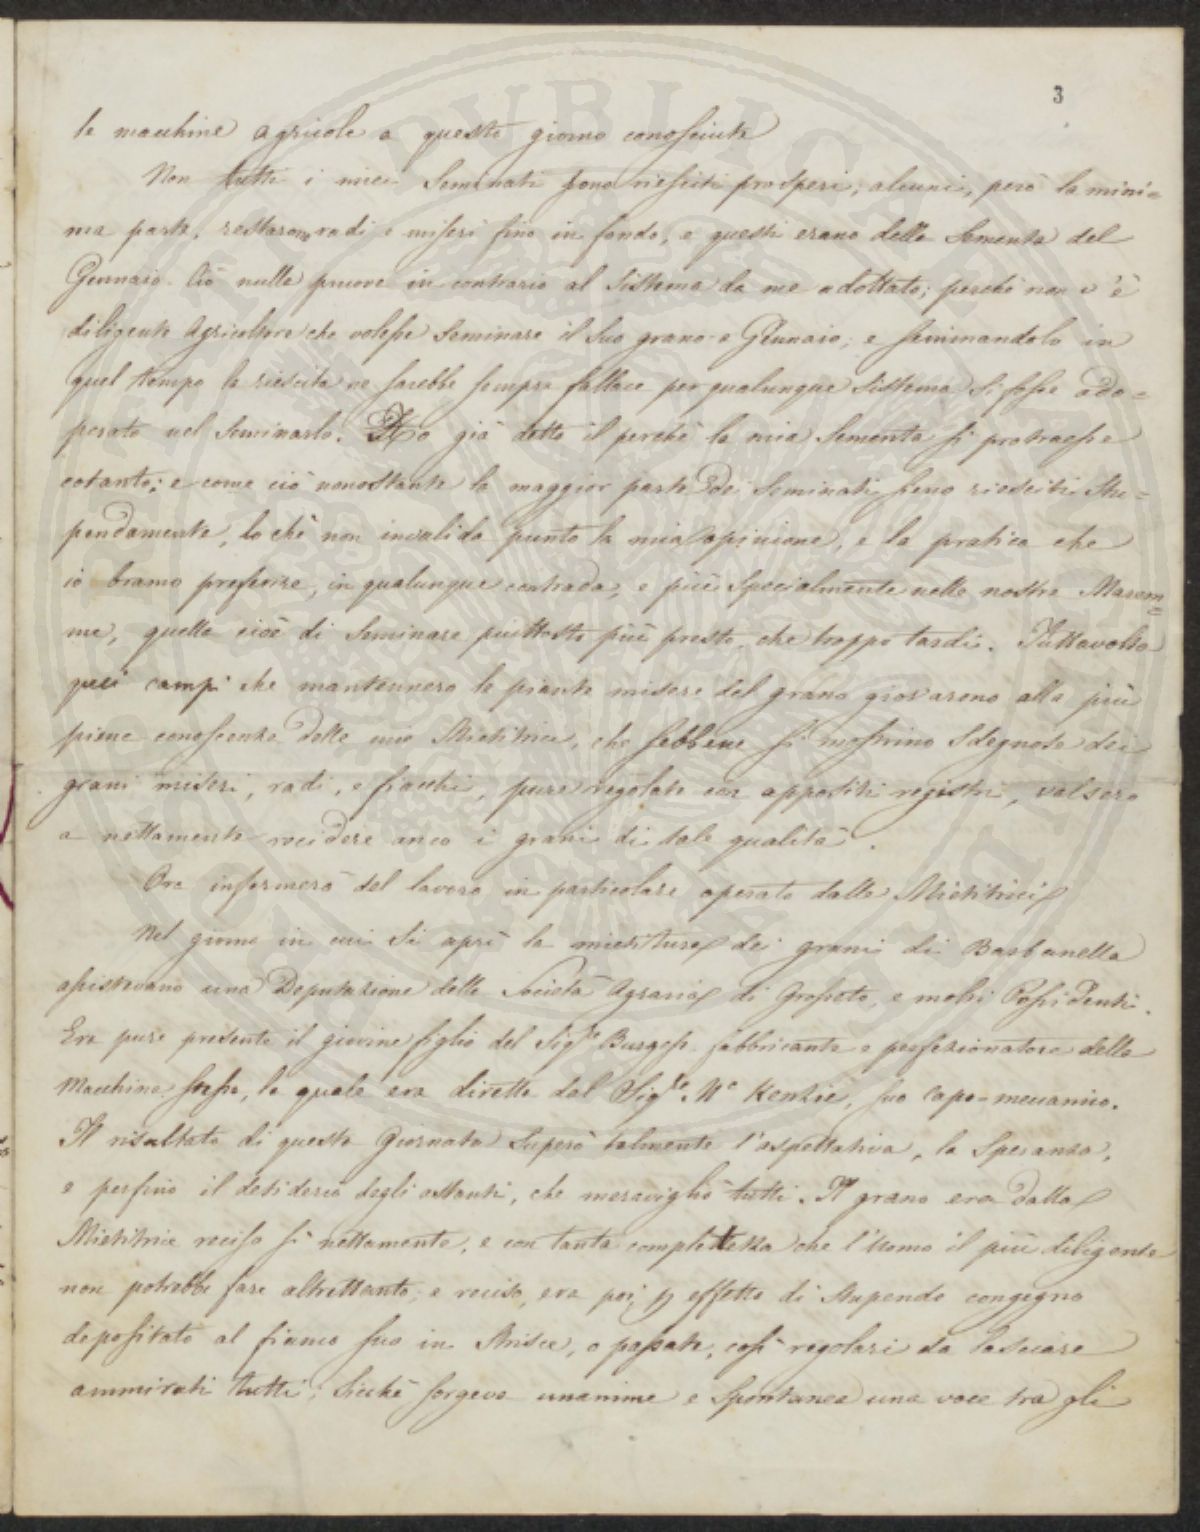 3
le macchine agricole a questo giorno conosciute
Non tutti i miei Seminati sono riesciti prosperi; alcuni, però la mini=
ma parte, restarono radi e miseri fino in fondo, e questi erano della Sementa del
Gennaio. Ciò nulla pruove in contrario al Sistema da me adottato; perchè non v'è
diligente Agricoltore che volesse Seminare il Suo grano a Gennaio; e seminandolo in
quel tempo la riescita ne sarebbe sempre fallace per qualunque Sistema Si fosse ado=
perato nel Seminarlo. Ho già detto il perchè la mia Sementa si protraesse
cotanto; e come ciò nonostante la maggior parte dei Seminati sieno riesciti Stu=
pendamente, lo chè non invalida punto la mia opinione, e la pratica che
io bramo preferire, in qualunque contrada, e più Specialmente nelle nostre Marem=
me, quella cioè di Seminare piuttosto più presto, che troppo tardi. Tuttavolta
quei campi che mantennero le piante misere del grano giovarono alla più
piena conoscenza delle mie Mietitrici, che sebbene si mostrino Sdegnose dei
grani miseri, radi, e fiacchi, pure regolate con appositi registri, valsero
a nettamente recidere anco i grani di tale qualità.
Ora informerò del lavoro in particolare operato dalle Mietitrici
Nel giorno in cui Si aprì la mietitura dei grani di Barbanella
assistevano una Deputazione della Società Agraria di Grosseto, e molti Possidenti.
Era pure presente il giovine figlio del Sig.re Burgess fabbricante e perfezionatore della
Macchina stessa, la quale era diretta dal Sig.re Mc Kenzie, suo capo-meccanico.
Il risultato di questa Giornata Superò talmente l'aspettativa, la Speranza,
e perfino il desiderio degli astanti, che meravigliò tutti. Il grano era dalla
Mietitrice reciso sì nettamente, e con tanta completezza che l'uomo il più diligente
non potrebbe fare altrettanto; e reciso, era poi, p effetto di Stupendo congegno
depositato al fianco suo in Strisce, o passate, così regolari da lasciare
ammirati tutti; Sicchè sorgeva unanime e Spontanea una voce tra gli